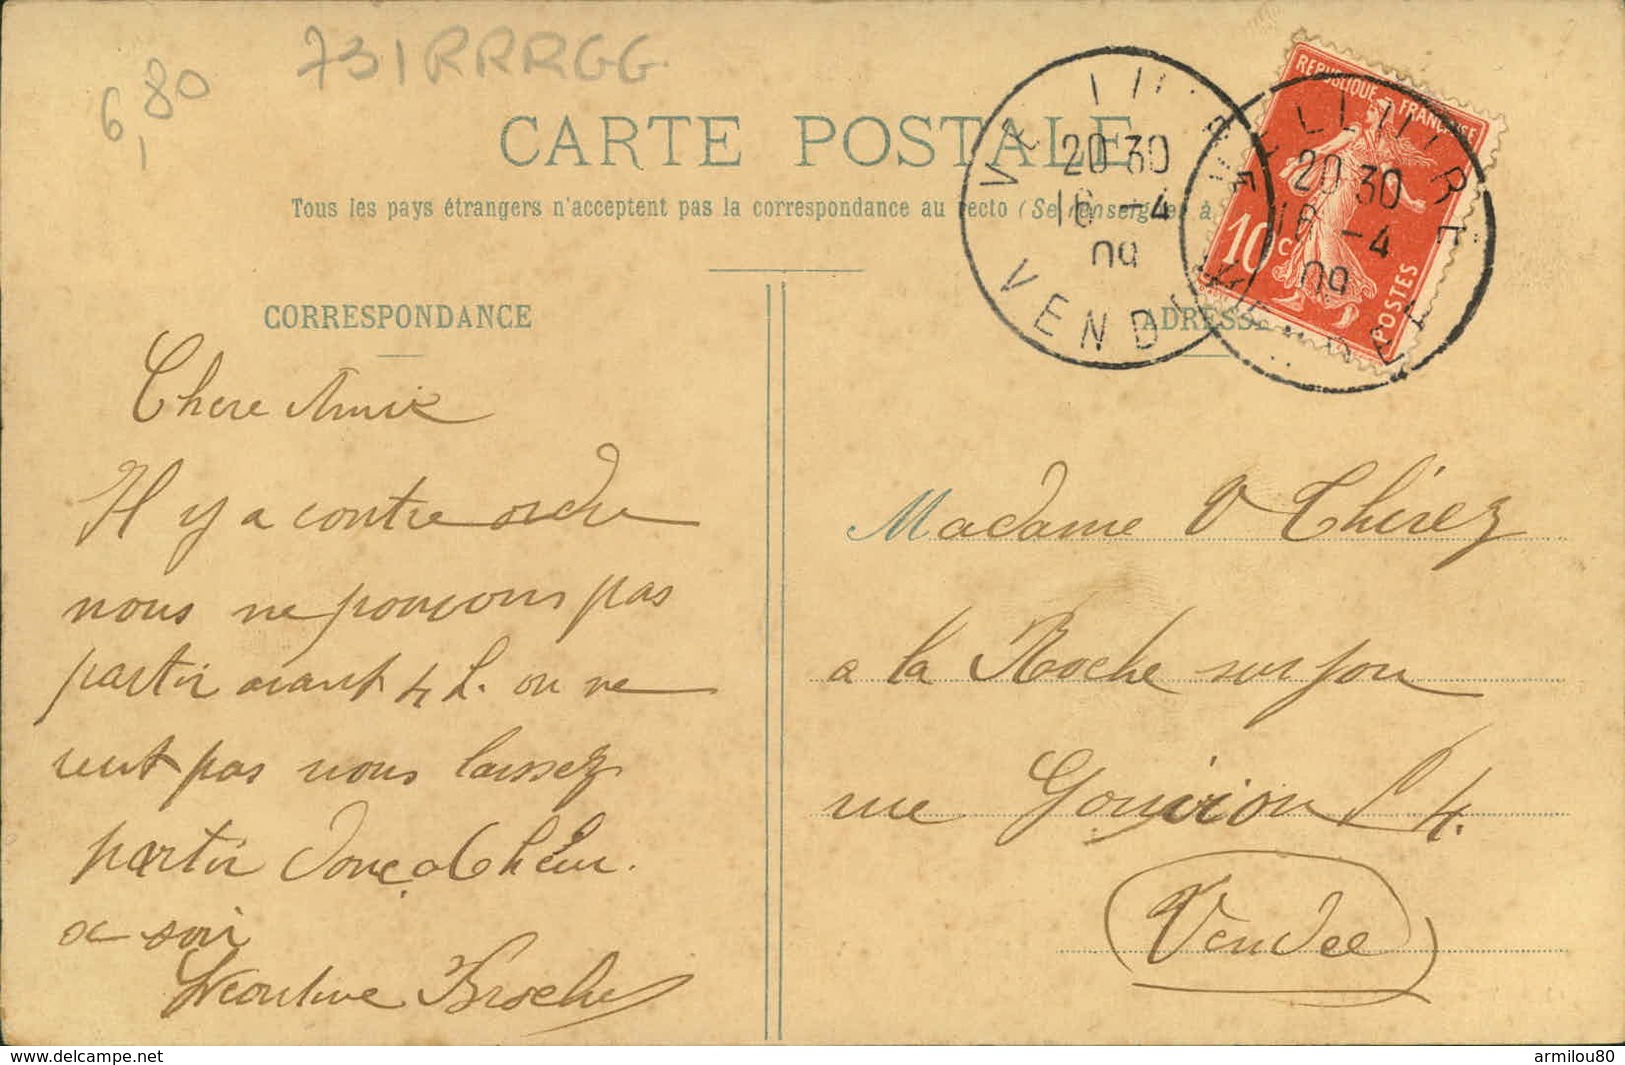 731RRRGG
6,80
CARTE POSTALE
Tous les pays étrangers n'acceptent pas la correspondance au recto (Se renseigner à
CORRESPONDANCE
ADRESSE
REPUBLIQUE FRANÇAISE
10c
POSTES
VELLUIRE
20 30
16 -4
09
VENDÉE
VELLUIRE
20 30
18 -4
09
VENDÉE
Chere Amie
Il y a contre ordre
nous ne pouvons pas
partir avant 4 h. on ne
veut pas nous laissez
partir donc a 6 heur.
ce soir
Madame V Thirez
a la Roche sur yon
rue Gouvion 4.
Vendee
delcampe.net
armilou80